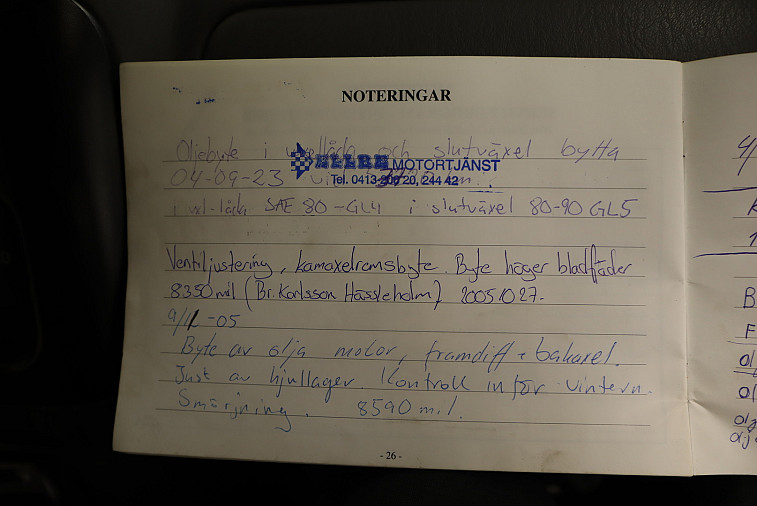 NOTERINGAR
Oljebyte i växellåda och slutväxel bytta
ELLBE MOTORTJÄNST
04-09-23 vid
Tel. 0413- 20, 244 42
i vxl-låda SAE 80-GL4 i slutväxel 80-90 GL5
Ventiljustering, kamaxelremsbyte. Byte höger bladfjäder
8350 mil (Br. Karlsson Hässleholm) 20051027-
9/11-05
Byte av olja motor, framdiff + bakaxel.
Just av hjullager. Kontroll inför vintern.
Smörjning. 8590 mil.
- 26 -
4/
B
F
ol
ol
olj
olj